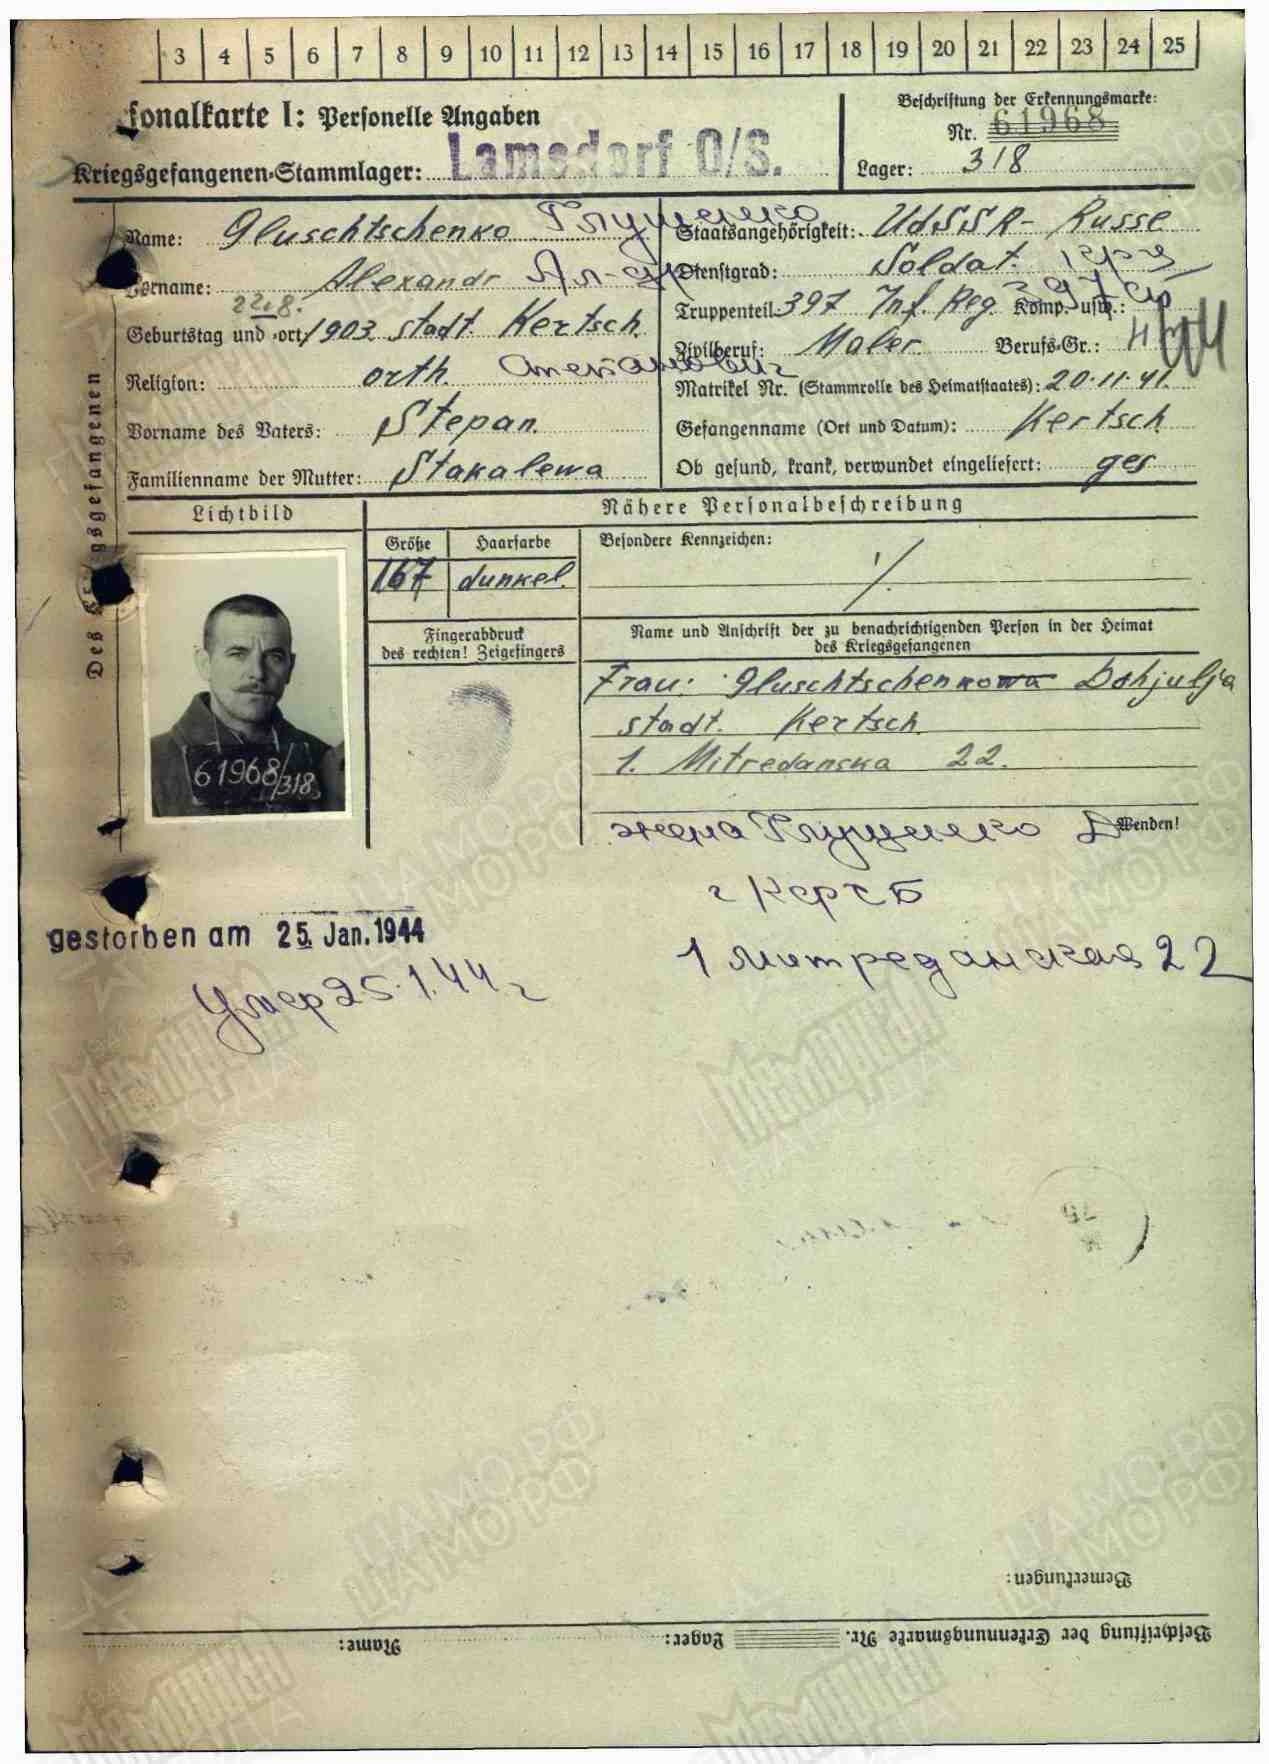 3 4 5 6 7 8 9 10 11 12 13 14 15 16 17 18 19 20 21 22 23 24 25
sonalkarte I: Personelle Angaben
Beschriftung der Erkennungsmarke:
Nr. 61968
Kriegsgefangenen-Stammlager: Lamsdorf O/S.
Lager: 318
Des Kriegsgefangenen
Name: Gluschtschenko Глущенко
Staatsangehörigkeit: UdSSR - Russe
Vorname: Alexandr Ал-др
Dienstgrad: Soldat.
22.8.
Geburtstag und -ort: 1903 stadt Kertsch.
Truppenteil: 397 Inf. Reg Komp. usw.:
397 ср
Zivilberuf: Maler. Berufs-Gr.:
Religion: orth. Степанович
Matrikel Nr. (Stammrolle des Heimatstaates): 20.11.41.
Vorname des Vaters: Stepan.
Gefangenname (Ort und Datum): Kertsch
Familienname der Mutter: Stakalewa
Ob gesund, krank, verwundet eingeliefert: ges
Lichtbild
Nähere Personalbeschreibung
Größe Haarfarbe
Besondere Kennzeichen:
167 dunkel.
./.
Fingerabdruck
des rechten! Zeigefingers
Name und Anschrift der zu benachrichtigenden Person in der Heimat
des Kriegsgefangenen
Frau: Gluschtschenkowa Dohjulja
stadt. Kertsch.
1. Mitredanska 22.
61968/318
Wenden!
жена Глущенко Д
г Керчь
gestorben am 25. Jan. 1944
1 Митреданская 22
Умер 25.1.44 г
Bemerkungen:
Beschriftung der Erkennungsmarke Nr. Lager: Name:
ЦАМО РФ
Мемориал
НАРОДА